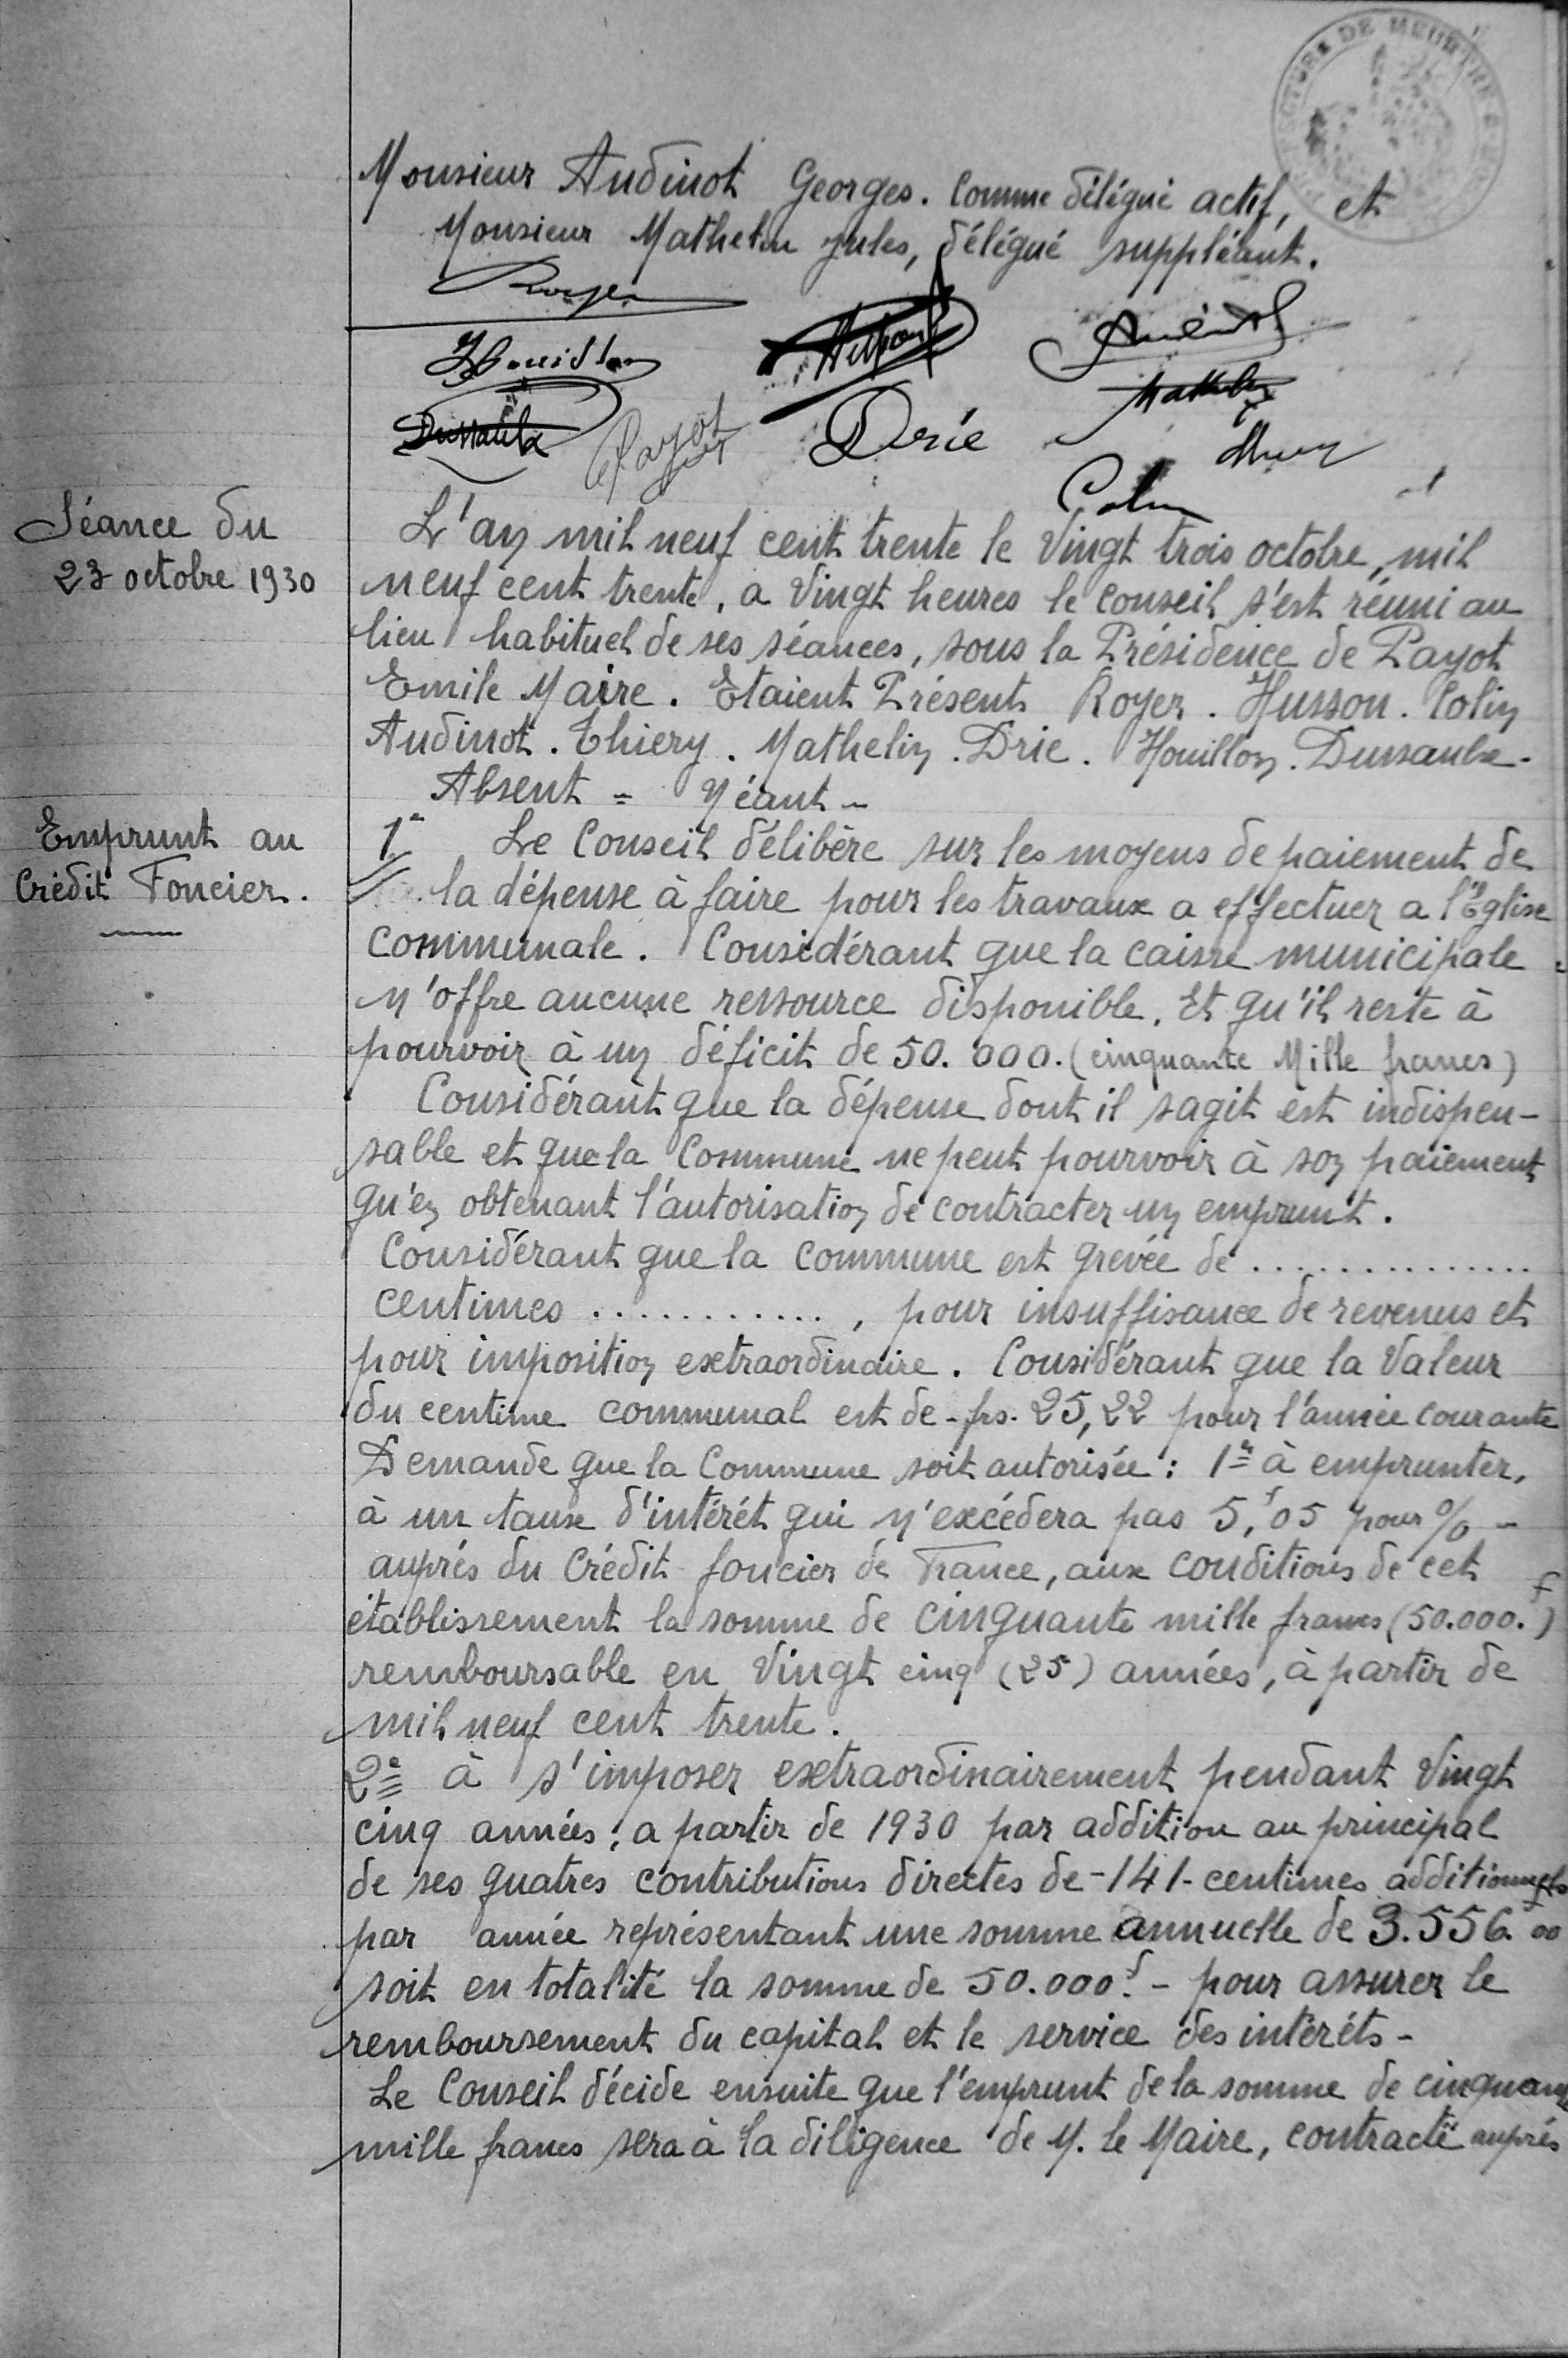 PRÉFECTURE DE MEURTHE &
Monsieur Audinot Georges. Comme délégué actif, et
Monsieur Mathelin Jules, délégué suppléant.
Royer
Houillon Husson Audinot
Mathelin
Dussaulx Payot Drie
Colin
Séance du
23 octobre 1930
L'an mil neuf cent trente le Vingt trois octobre, mil
neuf cent trente, a Vingt heures le Conseil s'est réuni au
lieu habituel de ses séances, sous la Présidence de Payot
Emile Maire. Etaient Présent Royer. Husson. Colin
Audinot. Thiery. Mathelin. Drie. Houillon. Dussaulx.
Absent = Néant -
Emprunt au
Crédit Foncier.
1° Le Conseil délibère sur les moyens de paiement de
la dépense à faire pour les travaux a effectuer a l'Eglise
communale. Considérant que la caisse municipale
n'offre aucune ressource disponible. Et qu'il reste à
pourvoir à un déficit de 50.000. (cinquante Mille francs)
Considérant que la dépense dont il sagit est indispen-
sable et que la Commune ne peut pourvoir à son paiement
qu'en obtenant l'autorisation de contracter un emprunt.
Considérant que la commune est grevée de ..............
centimes ............, pour insuffisance de revenus et
pour imposition extraordinaire. Considérant que la Valeur
du centime communal est de - frs. 25,22 pour l'année courante
Demande que la Commune soit autorisée : 1° à emprunter,
à un taux d'intérét qui n'excédera pas 5,f05 pour % -
auprés du Crédit foncier de France, aux conditions de cet
établissement la somme de cinquante mille francs (50.000.f)
remboursable en Vingt cinq (25) années, à partir de
mil neuf cent trente.
2° à s'imposer extraordinairement pendant Vingt
cinq années, a partir de 1930 par addition au principal
de ses quatres contributions directes de -141- centimes additionnels
par année représentant une somme annuelle de 3.556.f00
soit en totalité la somme de 50.000.f - pour assurer le
remboursement du capital et le service des intéréts -
Le Conseil décide ensuite que l'emprunt de la somme de cinquante
mille francs sera à la diligence de M. le Maire, contracté auprés